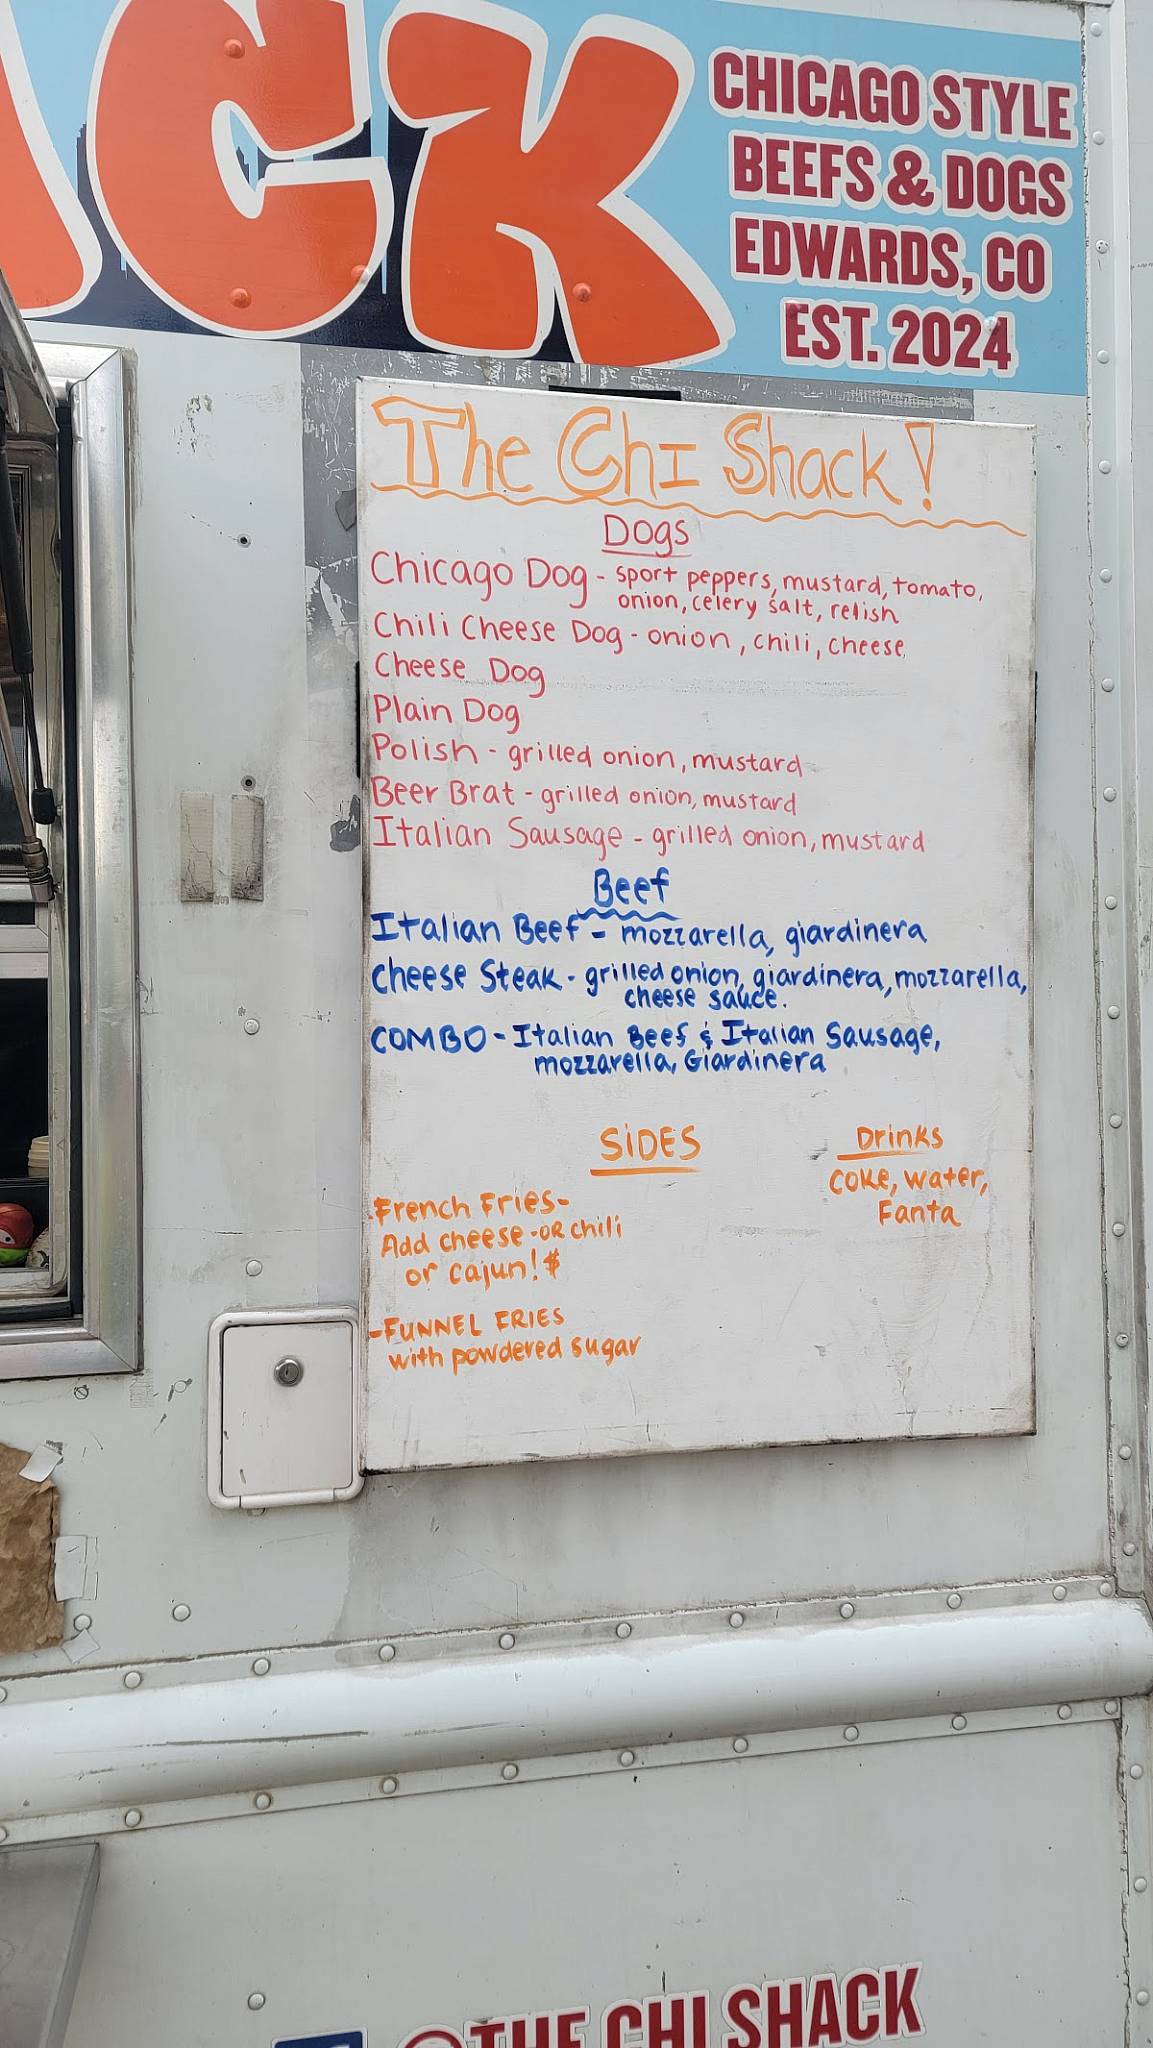 ACK
CHICAGO STYLE
BEEFS & DOGS
EDWARDS, CO
EST. 2024
The Chi Shack!
Dogs
Chicago Dog - sport peppers, mustard, tomato,
onion, celery salt, relish
Chili Cheese Dog - onion, chili, cheese
Cheese Dog
Plain Dog
Polish - grilled onion, mustard
Beer Brat - grilled onion, mustard
Italian Sausage - grilled onion, mustard
Beef
Italian Beef - mozzarella, giardinera
Cheese Steak - grilled onion, giardinera, mozzarella,
cheese sauce.
COMBO - Italian Beef & Italian Sausage,
mozzarella, Giardinera
SIDES
French Fries-
Add cheese -OR chili
or cajun! $
-FUNNEL FRIES
with powdered sugar
Drinks
Coke, water,
Fanta
@THE CHI SHACK